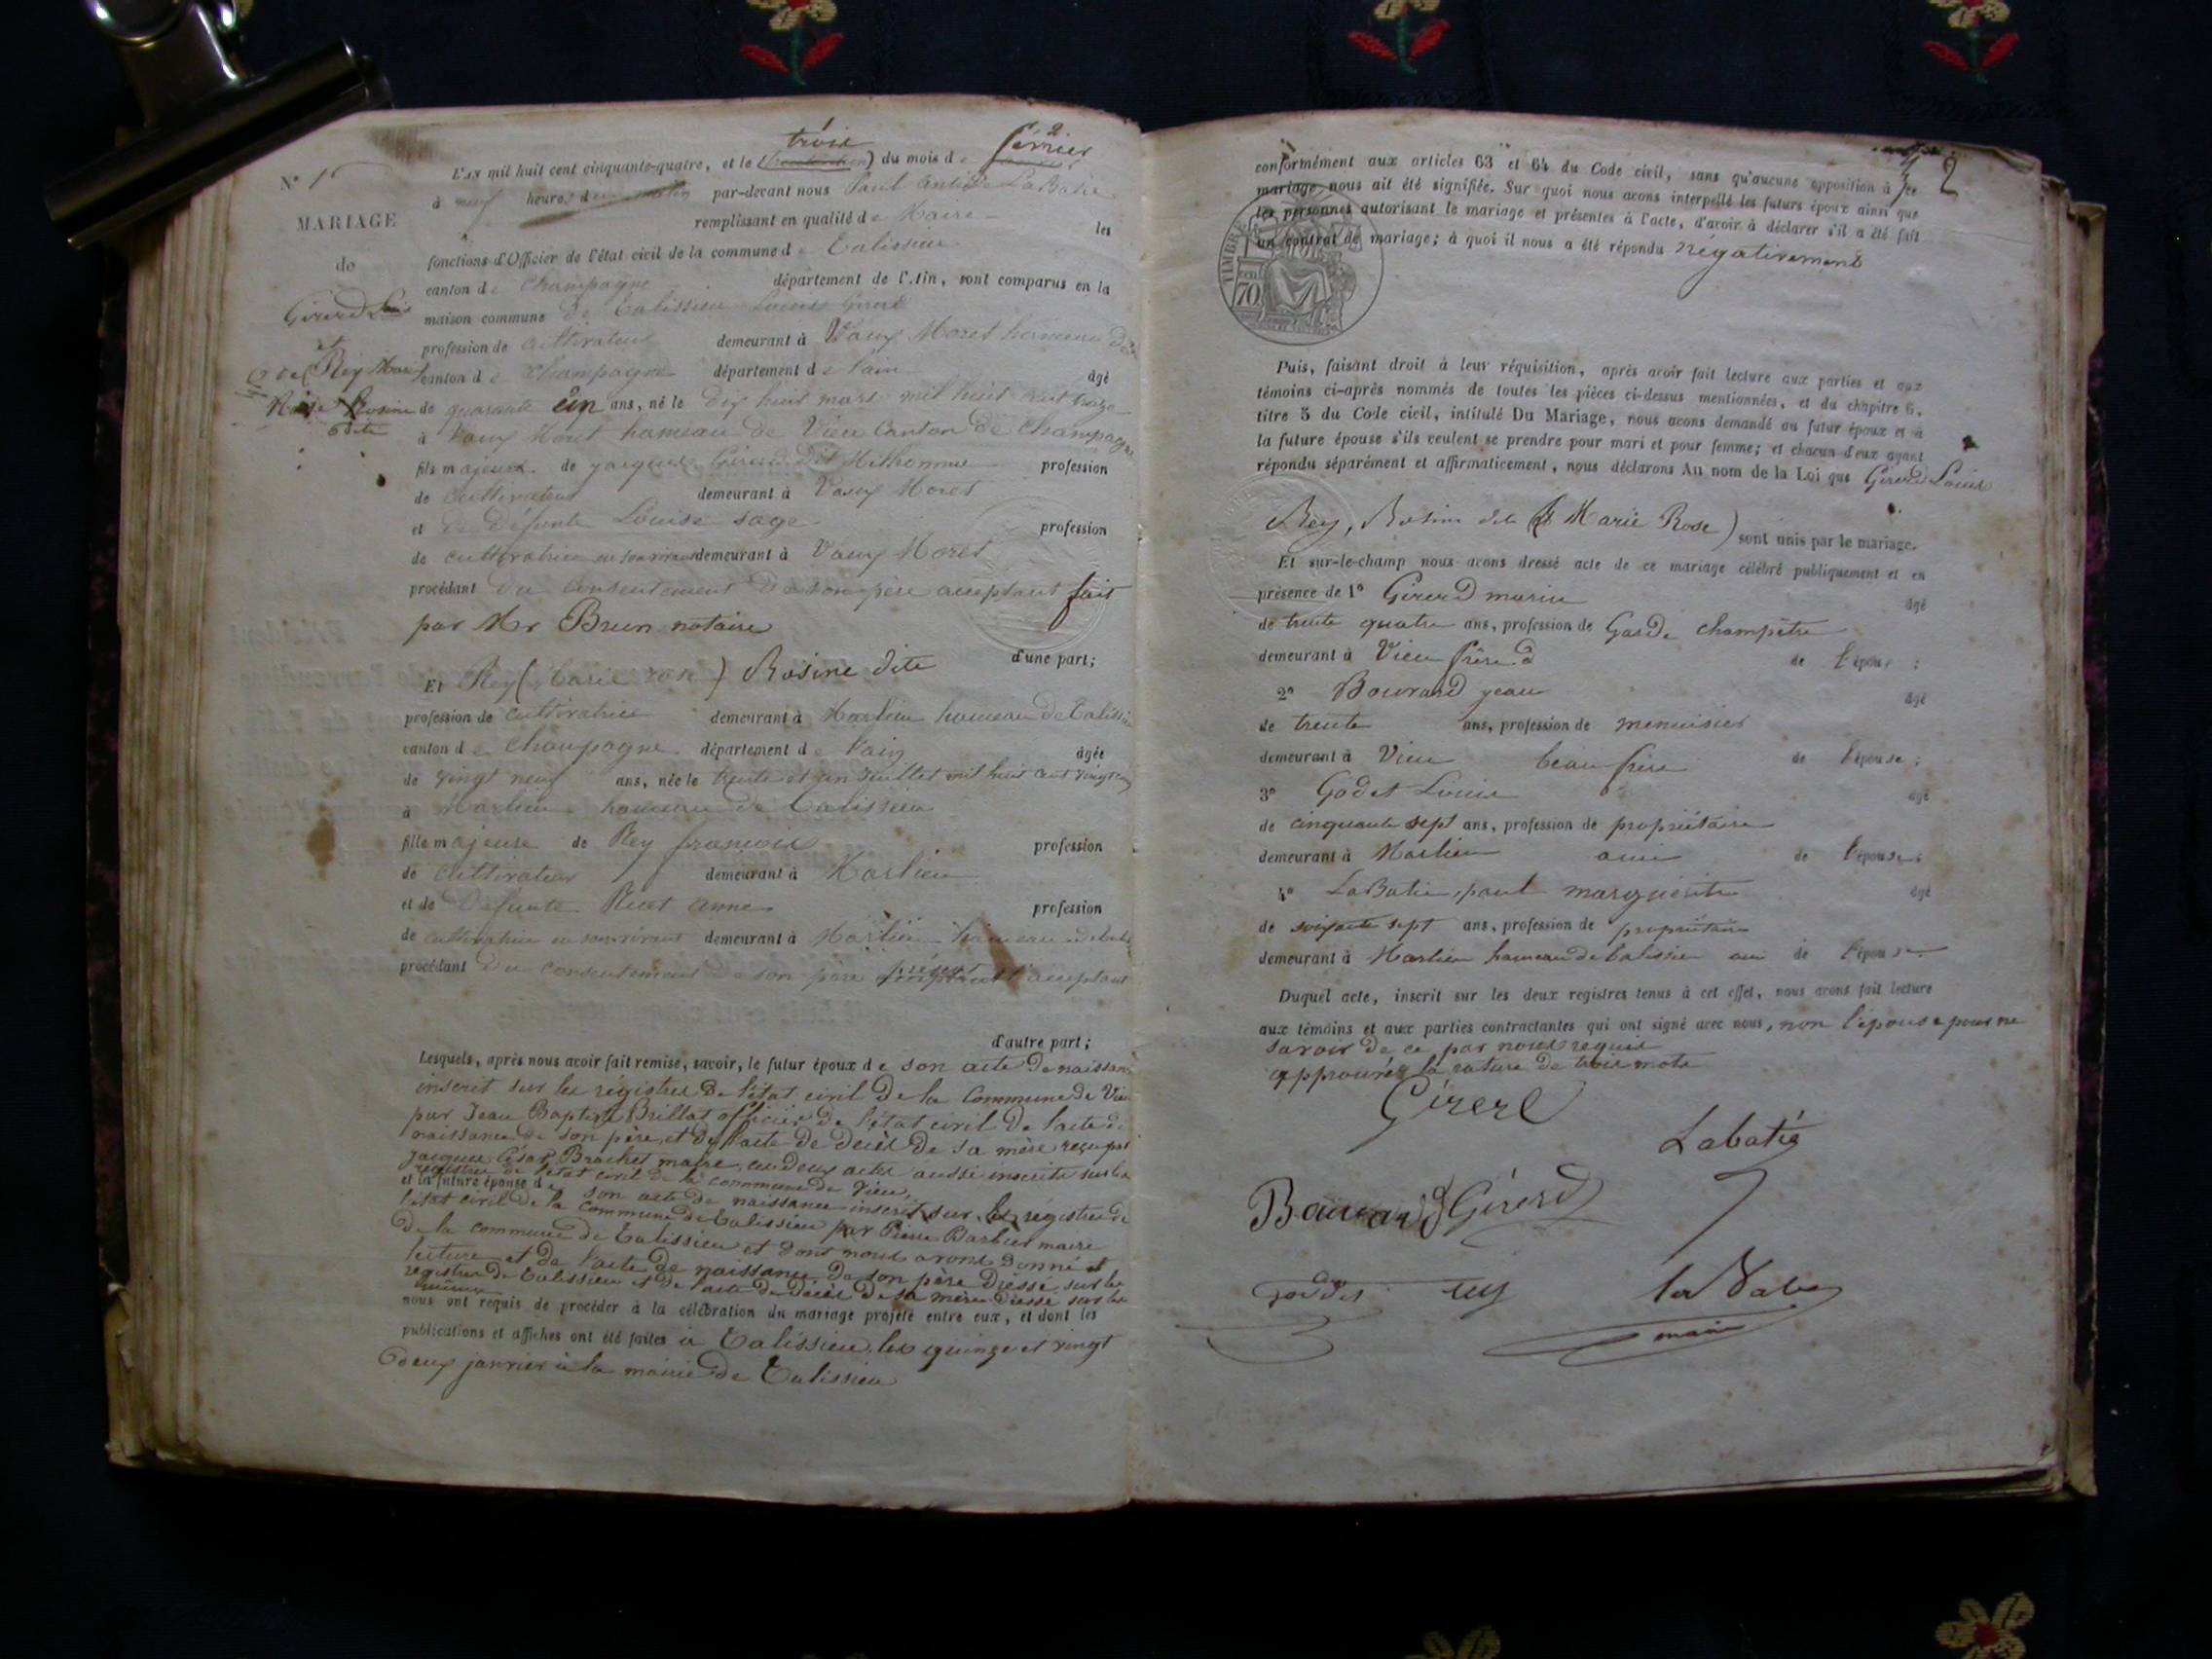 trois
2
N° 1
L'AN mil huit cent cinquante-quatre, et le () du mois de février
à neuf heures du matin par-devant nous Paul LaBatie
remplissant en qualité de Maire les
MARIAGE
fonctions d'Officier de l'état civil de la commune de Talissieu
de
canton de Champagne département de l'Ain, sont comparus en la
Girerd Louis
maison commune de Talissieu Louis Girerd
et
profession de cultivateur demeurant à Vaux Moret hameau de
Rey Marie
canton de Champagne département de l'ain âgé
Rose Rosine
de quarante un ans, né le dix huit mars mil huit cent treize
dite
à Vaux Moret hameau de Vieu Canton de Champagne
fils majeur de jacques Girerd dit Milhomme profession
de cultivateur demeurant à Vaux Moret
et de Défunte Louise sage profession
de cultivatrice en son vivant demeurant à Vaux Moret
procédant du consentement de son père acceptant fait
par Mr Brun notaire
d'une part;
Et Rey (Marie rose) Rosine dite
profession de cultivatrice demeurant à Marlieu hameau de Talissieu
canton de Champagne département de l'ain âgée
de vingt neuf ans, née le trente et un juillet mil huit cent vingt
à Marlieu hameau de Talissieu
fille majeure de Rey francois profession
de cultivateur demeurant à Marlieu
et de Défunte anne profession
de cultivatrice en son vivant demeurant à Marlieu hameau de
procédant du consentement de son père présent acceptant
d'autre part;
Lesquels, après nous avoir fait remise, savoir, le futur époux de son acte de naissance
inscrit sur les régistres de l'état civil de la Commune de Vieu
par Jean Baptiste Brillat officier de l'état civil de l'acte de
naissance de son père, et de l'acte de décès de sa mère reçu par
jacques César Brachet maire, ces deux actes aussi inscrits sur les
régistres de l'état civil de la commune de Vieu,
et la future épouse de son acte de naissance inscrit sur les régistres de
l'état civil de la Commune de Talissieu par Pierre Barbier maire
de la commune de Talissieu et dont nous avons donné
lecture et de l'acte de naissance de son père dressé sur les
registres de Talissieu et de l'acte de décès de sa mère dressé sur les
mêmes
nous ont requis de procéder à la célébration du mariage projeté entre eux, et dont les
publications et affiches ont été faites à Talissieu, les quinze et vingt
deux janvier à la mairie de Talissieu
2
conformément aux articles 63 et 64 du Code civil, sans qu'aucune opposition à ce
mariage nous ait été signifiée. Sur quoi nous avons interpellé les futurs époux ainsi que
les personnes autorisant le mariage et présentes à l'acte, d'avoir à déclarer s'il a été fait
un contrat de mariage; à quoi il nous a été répondu négativement
TIMBRE
70
Puis, faisant droit à leur réquisition, après avoir fait lecture aux parties et aux
témoins ci-après nommés de toutes les pièces ci-dessus mentionnées, et du chapitre 6,
titre 5 du Code civil, intitulé Du Mariage, nous avons demandé au futur époux et à
la future épouse s'ils veulent se prendre pour mari et pour femme; et chacun d'eux ayant
répondu séparément et affirmativement, nous déclarons Au nom de la Loi que Girerd Louis
Rey, Rosine dite (Marie Rose) sont unis par le mariage.
Et sur-le-champ nous avons dressé acte de ce mariage célébré publiquement et en
présence de 1° Girerd marin âgé
de trente quatre ans, profession de Garde champêtre
demeurant à Vieu frère de l'époux ;
2° Bouvard jean âgé
de trente ans, profession de menuisier
demeurant à Vieu beau frère de l'épouse ;
3° Godet Louis âgé
de cinquante sept ans, profession de propriétaire
demeurant à Marlieu ami de l'épouse ;
4° LaBatie, paul marguerite âgé
de soixante sept ans, profession de propriétaire
demeurant à Marlieu hameau de Talissieu ami de l'épouse
Duquel acte, inscrit sur les deux registres tenus à cet effet, nous avons fait lecture
aux témoins et aux parties contractantes qui ont signé avec nous, non l'épouse pour ne
savoir de ce par nous requis
approuvés la rature de trois mots
Girerd
Labatie
Bouvard Girerd
maire